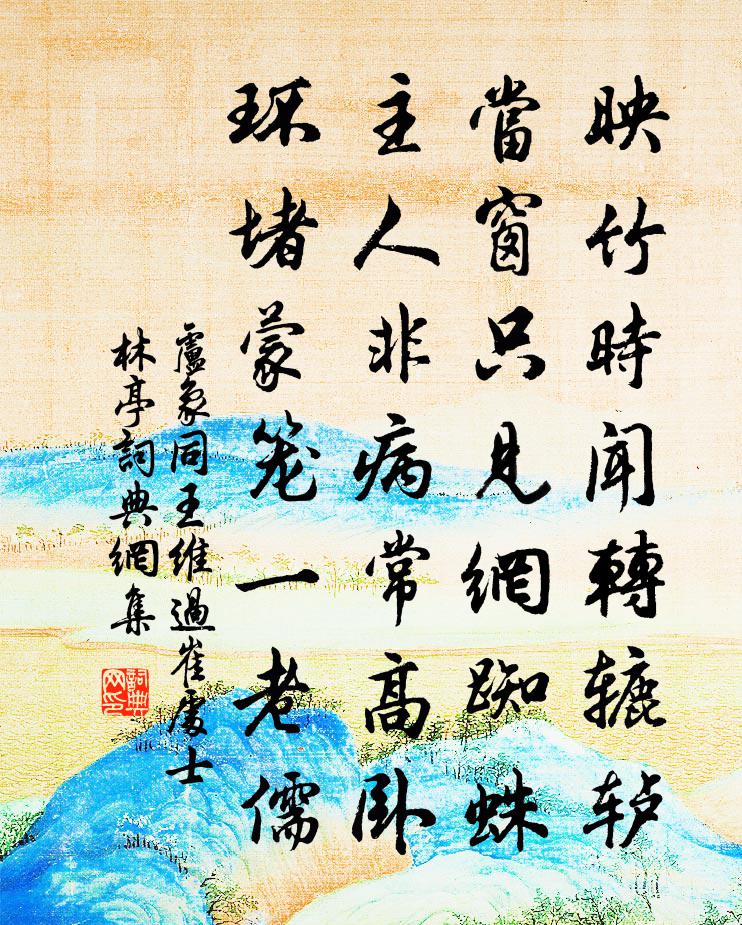 映竹時闻轉辘轳
當窗只見網踟蛛
主人非病常高卧
环堵蒙笼一老儒
盧象同王維過崔處士
林亭詞典網集
詞典
网印